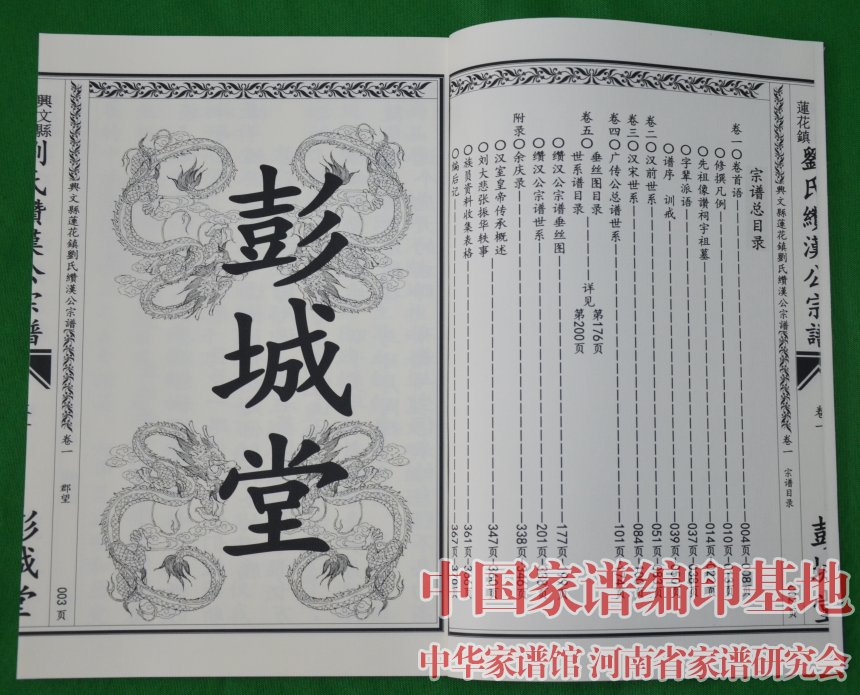 宗谱总目录
卷一〇卷首语
004页-008页
〇修撰凡例
010页
〇先祖像讚祠宇祖墓
014页
〇字辈派语
037页-038页
〇谱序 训戒
039页
卷二〇汉前世系
051页
卷三〇汉宋世系
084页
卷四〇广传公总谱世系
101页
卷五〇垂丝图目录
详见 第176页
世系谱目录
第200页
〇缵汉公宗谱垂丝图
177页
〇缵汉公宗谱世系
201页
附录〇余庆录
338页-346页
〇汉室皇帝传承概述
347页
〇刘大悲张振华轶事
〇族员资料收集表格
361页-366页
〇编后记
367页-370页
興文縣蓮花鎮劉氏纘漢公宗譜
卷一
宗谱目录
蓮花鎮
劉氏纘漢公宗譜
卷一
彭城堂
興文縣蓮花鎮劉氏纘漢公宗譜
卷一
郡望
003 页
興文縣
劉氏纘漢公宗譜
彭城堂
中国家谱编印基地
中华家谱馆 河南省家谱研究会